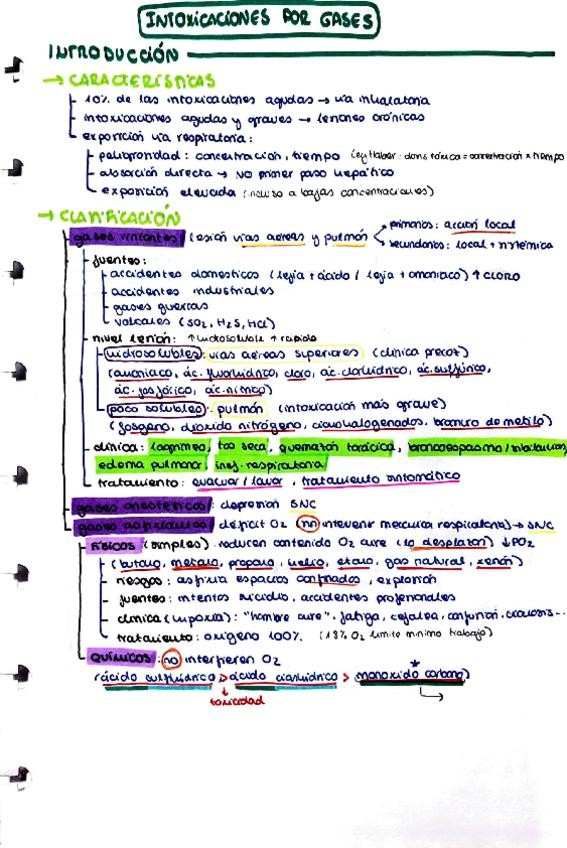 INTOXICACIONES POR GASES
INTRODUCCIÓN
→ CARACTERÍSTICAS
10% de las intoxicaciones agudas → vía inhalatoria
intoxicaciones agudas y graves → lesiones crónicas
exposición vía respiratoria:
peligrosidad: concentración, tiempo (ley Haber: dosis tóxica = concentración x tiempo
absorción directa → no primer paso hepático
exposición elevada (incluso a bajas concentraciones)
→ CLASIFICACIÓN
gases irritantes: lesión vías aéreas y pulmón
primarios: acción local
secundarios: local + sistémica
fuentes:
accidentes domésticos (lejía + ácido / lejía + amoniaco) ↑ CLORO
accidentes industriales
gases guerras
volcanes (SO2, H2S, HCl)
nivel lesión: ↑ hidrosoluble ↑ rápido
hidrosolubles: vías aéreas superiores (clínica precoz)
(amoniaco, ác. fluorhídrico, cloro, ác. clorhídrico, ác. sulfúrico,
ác. fosfórico, ác. nítrico)
poco solubles: pulmón (intoxicación más grave)
(fosgeno, dióxido nitrógeno, cianohalogenados, bromuro de metilo)
clínica: lagrimeo, tos seca, quemazón torácica, broncoespasmo /
edema pulmonar, insf. respiratoria
tratamiento: evacuar / lavar, tratamiento sintomático
gases anestésicos: depresión SNC
gases asfixiantes: déficit O2 (no intervenir mecánica respiratoria) → SNC
FÍSICOS (simples): reducen contenido O2 aire (lo desplazan) ↓PO2
(butano, metano, propano, helio, etano, gas natural, xenón)
riesgos: asfixia espacios confinados, explosión
fuentes: intentos suicidio, accidentes profesionales
clínica (hipoxia): "hambre aire", fatiga, cefalea, confusión, cianosis...
tratamiento: oxígeno 100% (18% O2 límite mínimo trabajo)
QUÍMICOS: no interfieren O2
(ácido sulfhídrico > ácido cianhídrico > monóxido carbono)
*
↓
toxicidad